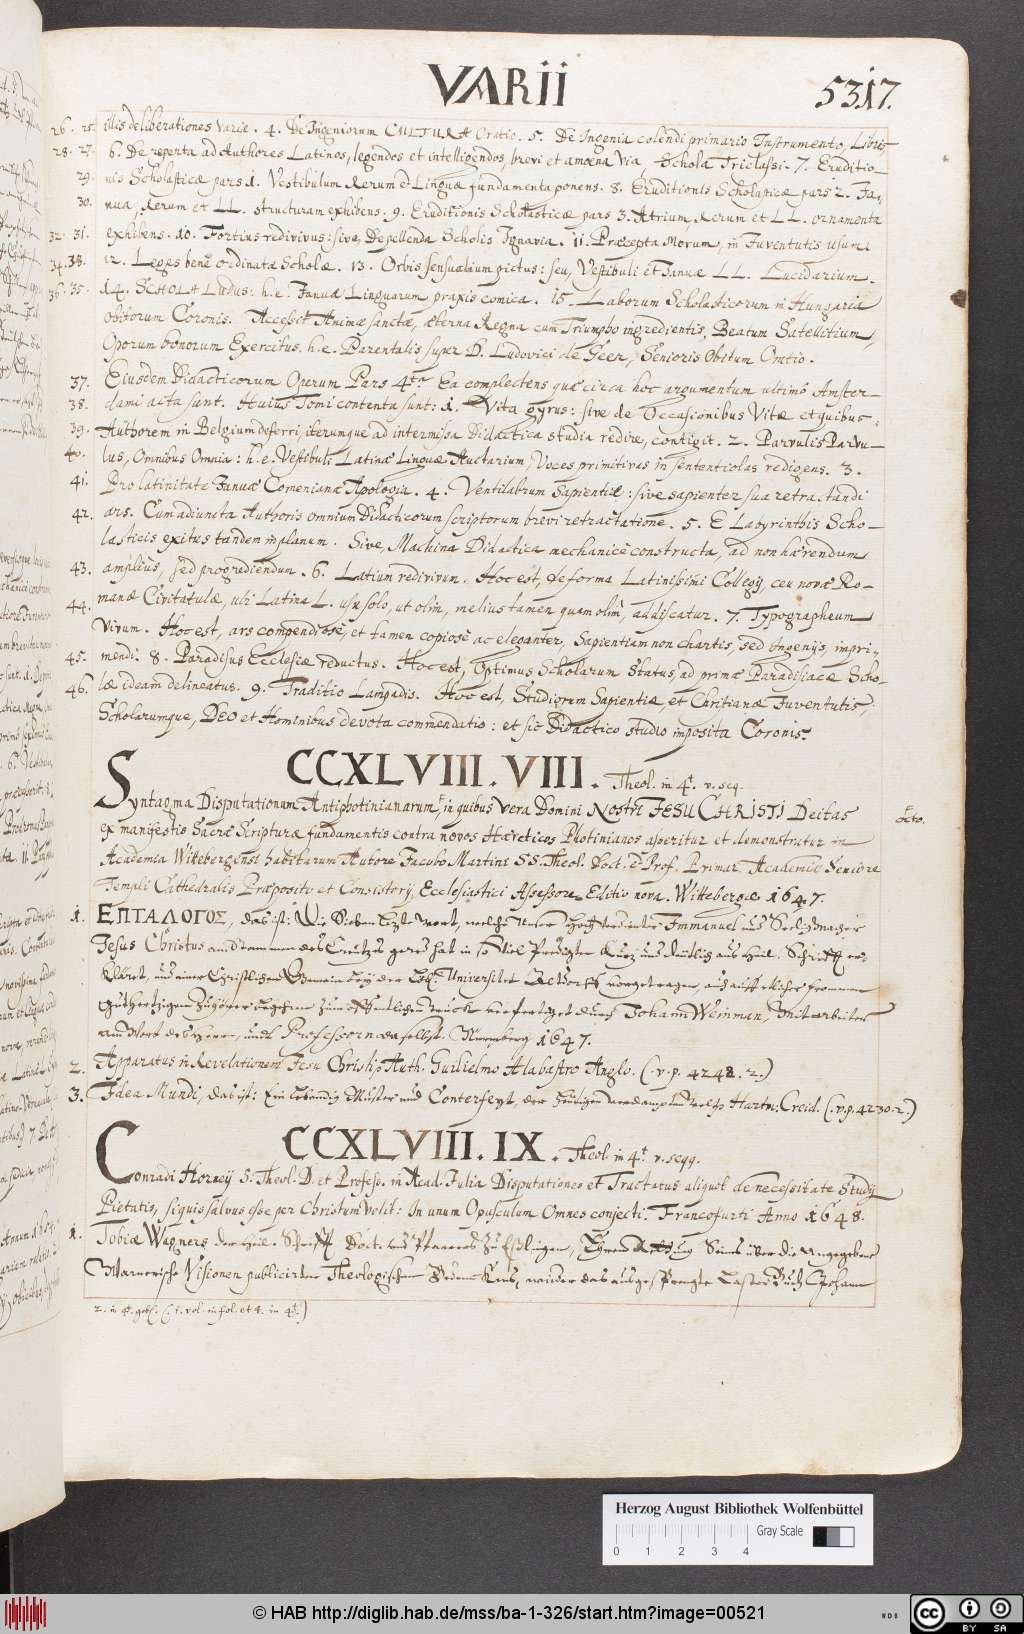 VARII
5317.
26. 25. illis deliberationes variæ. 4. De Ingeniorum CULTURA Oratio. 5. De Ingenia colendi primario Instrumento, Libris
28. 27. 6. De reperta ad Authores Latinos, legendos et intelligendos, brevi et amœna via, Schola Triclassi. 7. Eruditio-
29. nis Scholasticæ pars 1. Vestibulum Rerum et Linguæ fundamenta ponens. 8. Eruditionis Scholasticæ pars 2. Ja-
30. nua, Rerum et LL. structuram exhibens. 9. Eruditionis Scholasticæ pars 3. Atrium, Rerum et LL. ornamenta
32. 31. exhibens. 10. Fortius redivivus: sive, De pellenda Scholis Ignavia. 11. Præcepta Morum, in Juventutis usum
34. 33. 12. Leges benè ordinatæ Scholæ. 13. Orbis sensualium pictus: seu, Vestibuli et Januæ LL. Lucidarium.
36. 35. 14. SCHOLA Ludus: h.e. Januæ Linguarum praxis comica. 15. Laborum Scholasticorum in Hungaria
obitorum Coronis. Accessit Animæ sanctæ, æterna Regna cum Triumpho ingredientis, Beatum Satellitium,
Operum bonorum Exercitus. h.e. Parentalis super D. Ludovici de Geer, Senioris Obitum Oratio.
37. Eiusdem Didacticorum Operum Pars 4ta Ea complectens quæ circa hoc argumentum ultimò Amster-
38. dami acta sunt. Huius Tomi contenta sunt: 1. Vita gyrus: sive de Occasionibus Vitæ et quibus
39. Authorem in Belgium deferri, iterumque ad intermissa Didactica studia redire, contigit. 2. Parvulis Parvu-
40. lus, Omnibus Omnia: h.e. Vestibuli Latinæ Linguæ Auctarium, Voces primitivas in sententiolas redigens. 3.
41. Pro latinitate Januæ Comenianæ Apologia. 4. Ventilabrum Sapientiæ: sive sapienter sua retractandi
42. ars. Cum adiuncta Authoris omnium Didacticorum scriptorum brevi retractatione. 5. E Labyrinthis Scho-
lasticis exitus tandem in planum. Sive, Machina Didactica mechanicè constructa, ad non hærendum
43. ampliùs, sed progrediendum. 6. Latium redivivum. Hoc est, de forma Latinissimi Collegij, ceu novæ Ro-
44. manæ Civitatulæ, ubi Latina L. usu solo, ut olim, melius tamen quam olim, addiscatur. 7. Typographeum
Vivum. Hoc est, ars compendiosè, et tamen copiosè ac eleganter, Sapientiam non chartis, sed Ingenijs, impri-
45. mendi. 8. Paradisus Ecclesiæ reductus. Hoc est, Optimus Scholarum Status, ad primæ Paradisiacæ Scho-
46. læ ideam delineatus. 9. Traditio Lampadis. Hoc est, Studiorum Sapientiæ et Christianæ Juventutis
Scholarumque, DEO et Hominibus devota commendatio: et sic Didactico studio imposita Coronis.
CCXLVIII. VIII. Theol. in 4t. v. seq.
Syntagma Disputationum Antiphotinianarum, in quibus vera Domini NOSTRI JESU CHRISTI Deitas
ex manifestis Sacræ Scripturæ fundamentis contra novos Hæreticos Photinianos asseritur et demonstratur in
Academia Wittebergensi habitarum Autore Jacobo Martini SS. Theol. Doct. et Prof. Primar. Academiæ Seniore
Templi Cathedralis Præposito et Consistorij Ecclesiastici Assessore Editio nova. Wittebergæ 1647.
1. ΕΠΤΑΛΟΓΟΣ, das ist: Die Sieben letzte wort, welche Unser Hochverdienter Immanuel und Seeligmacher
Jesus Christus am Stammen des Creutzes geredt hat in so viel Predigten Kurtz und deutlich aus Heil. Schrifft er-
kläret, und einer Christlichen Gemein bey der Löbl. Universitet Altdorff vorgetragen, und auff etlicher frommen
guthertzigen Zuhörer begehren zum offentlichen truck verfertiget durch Johann Weinman, Mitarbeiter
am Wort des Herrn, undt Professorn daselbst. Nürmberg 1647.
2. Apparatus in Revelationem Jesu Christi, Auth. Guilielmo Alabastro Anglo. (. v.p. 4242. 2.)
3. Idea Mundi, das ist: Ein Lebendig Muster und Conterfeyt, der heutigen verdampten welt, Hartm. Creid. (.v.p. 4230. 2.)
CCXLVIII. IX. Theol. in 4t. v. seqq.
Conradi Horneij S. Theol. D. et Profess. in Acad. Julia Disputationes et Tractatus aliquot de necessitate Studij
Pietatis, si quis salvus esse per Christum velit: In unum Opusculum Omnes conjecti. Francofurti Anno 1648.
1. Tobiæ Wagners der Heil. Schrifft Doct. und Pfarrers zu Eßlingen, Seins über die angegebene
Warnerische Visionen publicirten Theologischen Bedenckens, wieder das ausgesprengte Laster Buch Johann
2. in 4t. gebl. (. 1. vol. in fol. et 4. in 4t.)
Herzog August Bibliothek Wolfenbüttel
Gray Scale
0 1 2 3 4
© HAB http://diglib.hab.de/mss/ba-1-326/start.htm?image=00521
CC BY SA